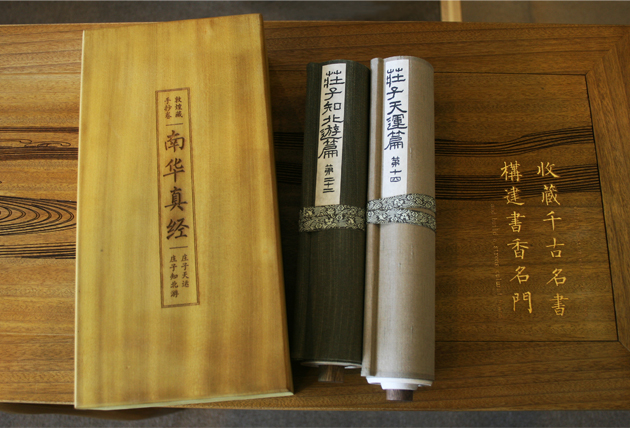 敦煌藏
手抄卷
南华真经
庄子天运
庄子知北游
莊子知北遊篇 第二十二
莊子天運篇 第十四
收藏千古名書
構建書香名門